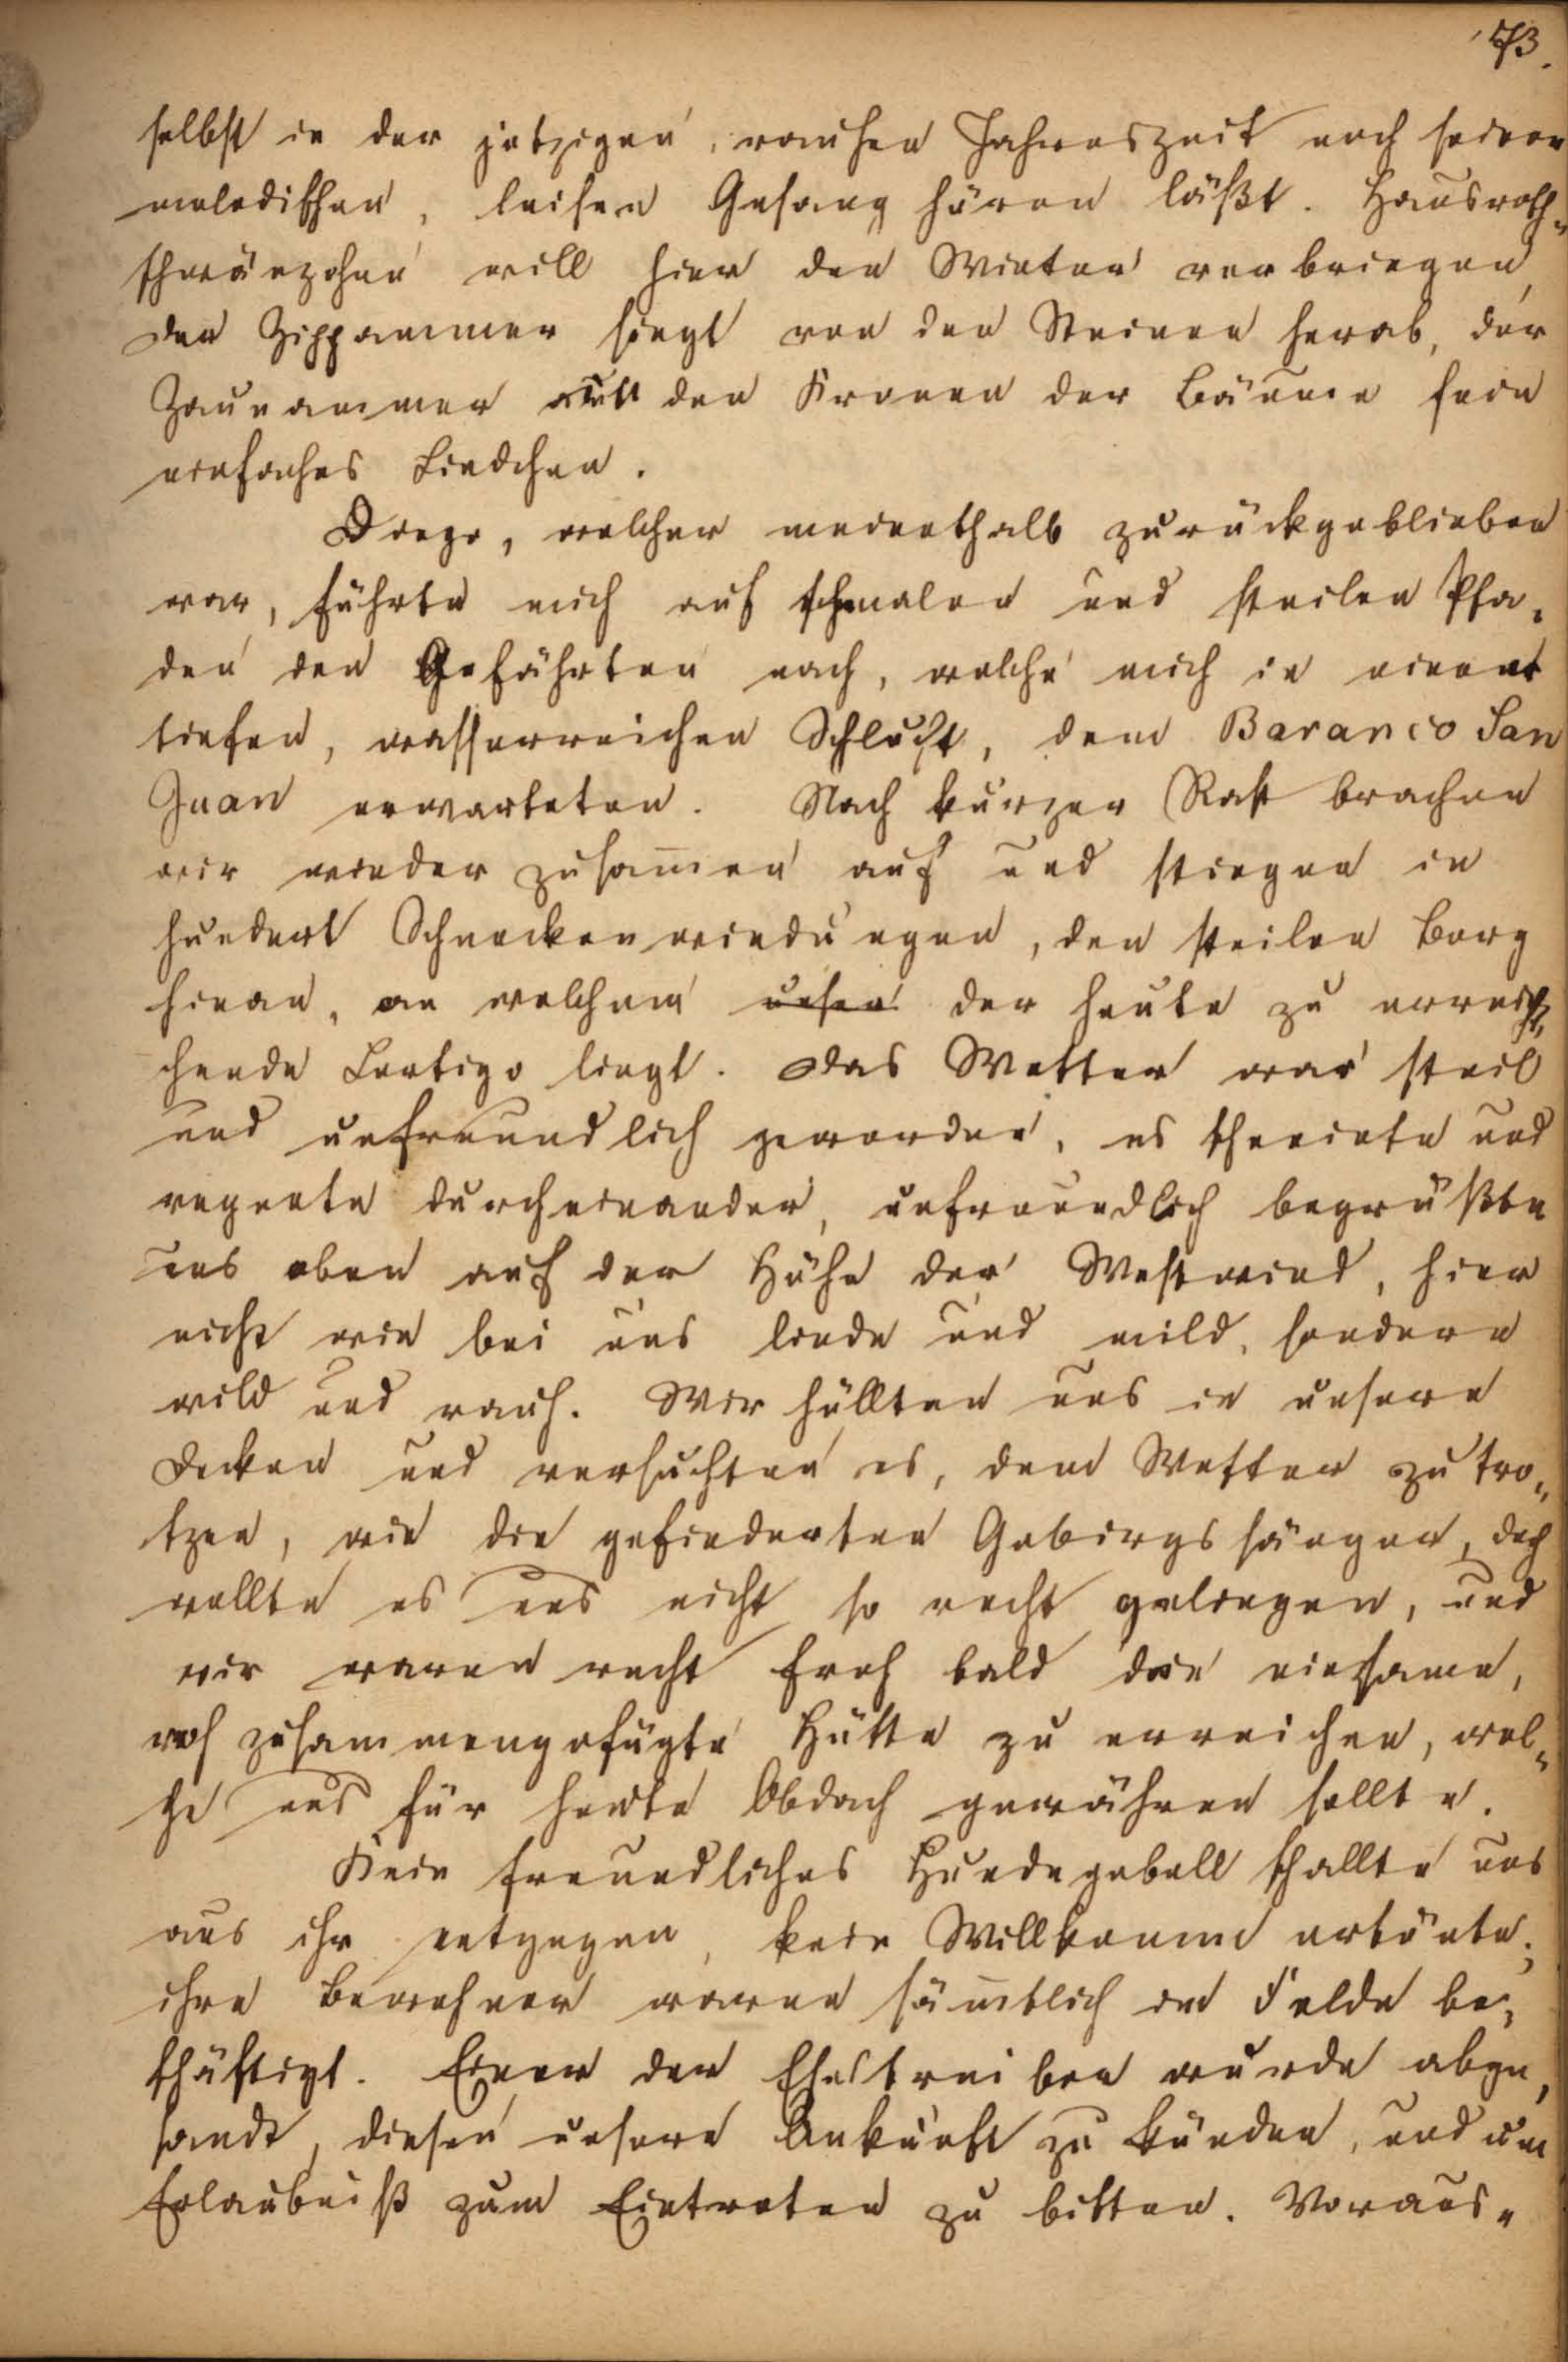 73.
selbst in der jetzigen, rauhen Jahreszeit noch seinen
melodischen, leisen Gesang hören läßt. Hausroth-
schwänzchen will hier den Winter verbringen,
der Zippammer singt von den Steinen herab, der
Zaunammer aus den Kronen der Bäume sein
einfaches Liedchen.
Diego, welcher meinethalb zurückgeblieben
war, führte mich auf schmalen und steilen Pfa-
den den Gefährten nach, welche mich in einer
tiefen, wasserreichen Schlucht, dem Baranco San
Juan erwarteten. Nach kurzer Rast brachen
wir wieder zusam̅en auf und stiegen in
hundert Schneckenwindungen, den steilen Berg
hinan, an welchem unser der heute zu errei-
chende Cortigo liegt. Das Wetter war steil
und unfreundlich geworden, es schneiete und
regnete durcheinander, unfreundlich begrüßte
uns oben auf der Höhe der Westwind, hier
nicht wie bei uns linde und mild, sondern
wild und rauh. Wir hüllten uns in unsere
Decken und versuchten es, dem Wetter zu tro-
tzen, wie die gefiederten Gebirgssänger, doch
wollte es uns nicht so recht gelingen, und
wir waren recht froh bald die einsame,
roh zusammengefügte Hütte zu erreichen, wel-
che uns für heute Obdach gewähren sollte.
Kein freundliches Hundegebell schallte uns
aus ihr entgegen, kein Willkomme ertönte;
ihre Bewohner waren säm̅tlich im Felde be-
schäftigt. Einer der Eseltreiber wurde abge-
sandt, diesen unsere Ankunft zu künden, und um
Erlaubniß zum Eintreten zu bitten. Voraus-